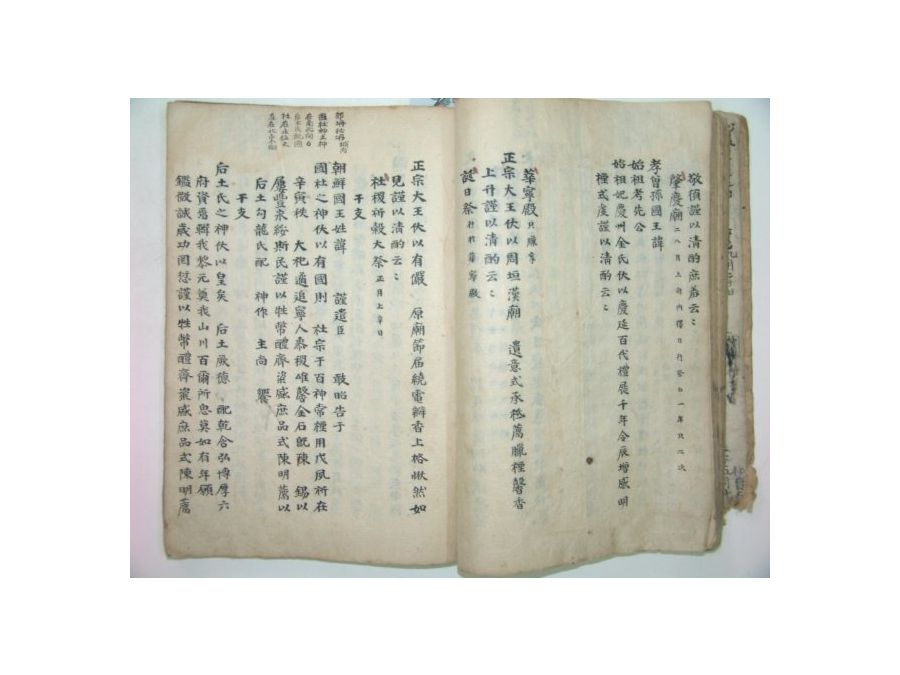 敬順謹以清酌庶羞云云
肇慶廟
孝曾孫國王諱
始祖考先公
始祖妣慶州金氏伏以慶延百代禮展千年令辰增感明
禋式虔謹以清酌云云
華寧殿
正宗大王伏以周垣漢廟 遺意式承 薦臘禋馨香
上升謹以清酌云云
誕日祭
正宗大王伏以有儼 原廟節屆繞電瓣香上格愀然如
見謹以清酌云云
社稷祈穀大祭 正月上辛日
干支
朝鮮國王姓諱 謹遣臣 敢昭告于
國社之神伏以有國則 社宗于百神常禋用戊夙所在
辛寅秩 大祀遹追寧人黍稷維馨金石旣陳 錫以
屢豐來綏斯民謹以牲幣醴齊粢盛庶品式陳明薦以
后土勾龍氏配 神作主尚 饗
干支
后土氏之神伏以皇矣 后土厥德 配乾含弘博厚六
府資焉輯我黎元奠我山川百爾所思莫如有年願
鑑微誠歲功罔愆謹以牲幣醴齊粢盛庶品式陳明薦